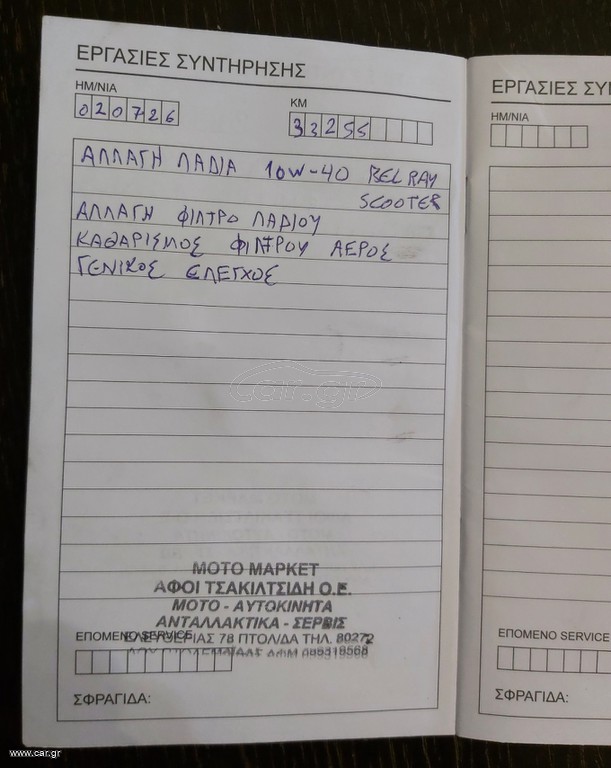 ΕΡΓΑΣΙΕΣ ΣΥΝΤΗΡΗΣΗΣ
ΗΜ/ΝΙΑ
020726
ΚΜ
33255
ΑΛΛΑΓΗ ΛΑΔΙΑ 10W-40 BEL RAY
SCOOTER
ΑΛΛΑΓΗ ΦΙΛΤΡΟ ΛΑΔΙΟΥ
ΚΑΘΑΡΙΣΜΟΣ ΦΙΛΤΡΟΥ ΑΕΡΟΣ
ΓΕΝΙΚΟΣ ΕΛΕΓΧΟΣ
car.gr
ΜΟΤΟ ΜΑΡΚΕΤ
ΑΦΟΙ ΤΣΑΚΙΛΤΣΙΔΗ Ο.Ε.
ΜΟΤΟ - ΑΥΤΟΚΙΝΗΤΑ
ΑΝΤΑΛΛΑΚΤΙΚΑ - ΣΕΡΒΙΣ
ΕΛΕΥΘΕΡΙΑΣ 78 ΠΤΟΛ/ΔΑ ΤΗΛ. 80272
ΕΠΟΜΕΝΟ SERVICE
ΣΦΡΑΓΙΔΑ:
ΕΡΓΑΣΙΕΣ ΣΥ
ΗΜ/ΝΙΑ
ΕΠΟΜΕΝΟ SERVICE
ΣΦΡΑΓΙΔΑ:
www.car.gr